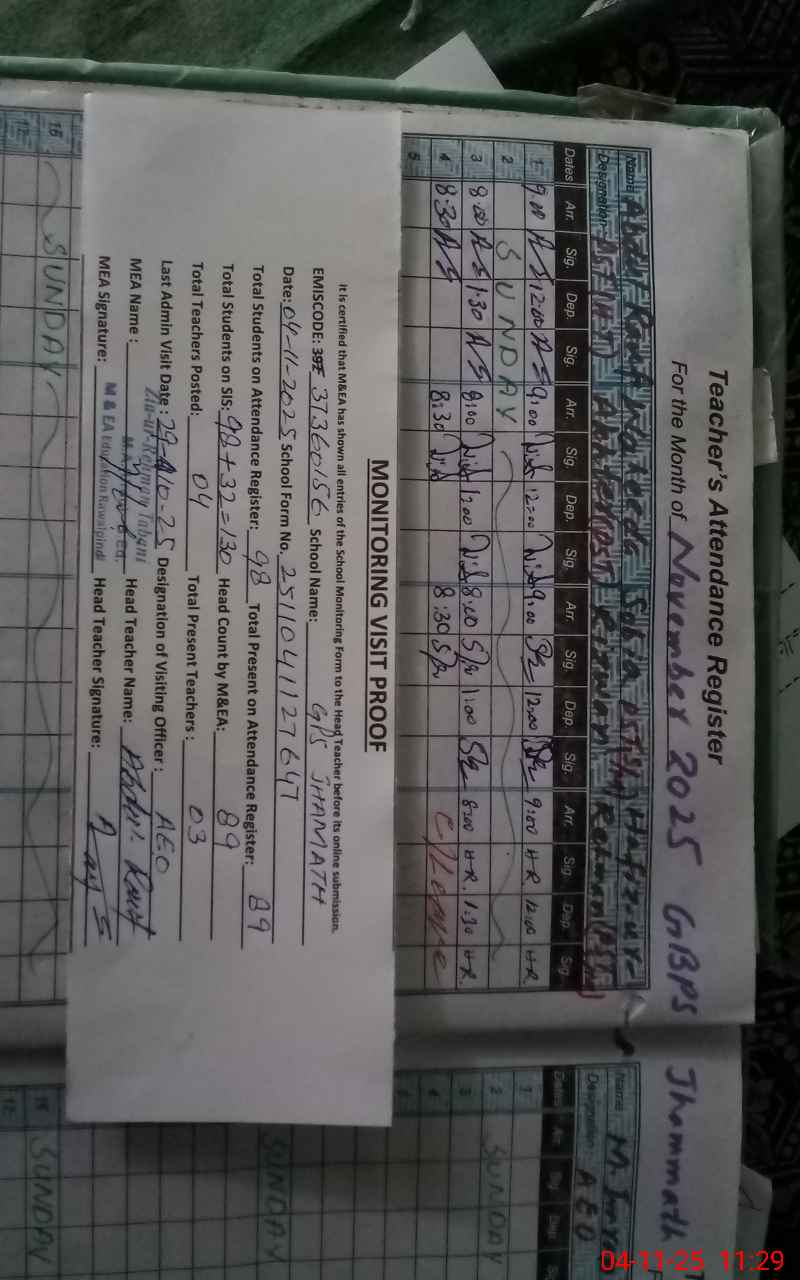 Teacher's Attendance Register
For the Month of November 2025 GBPS Jhammath
Name Abdul Rauf Waheeda Sobia Hafiz-ur-
Designation: PST (H.T) Rizwan Rehman (PST)
Dates Arr. Sig. Dep. Sig. Arr. Sig. Dep. Sig. Arr. Sig. Dep. Sig. Arr. Sig. Dep. Sig.
1 9:00 AS 12:00 AS 9:00 12:00 9:00 12:00 9:00 H.R. 12:00 H.R.
2 SUNDAY
3 8:00 AS 1:30 AS 8:00 1:00 8:00 1:00 8:00 H.R. 1:30 H.R.
4 8:30 AS 8:30 8:30 C/Leave
5
MONITORING VISIT PROOF
It is certified that M&EA has shown all entries of the School Monitoring Form to the Head Teacher before its online submission.
EMISCODE: 37360156 School Name: GPS JHAMATH
Date: 04-11-2025 School Form No. 2511041127647
Total Students on Attendance Register: 98 Total Present on Attendance Register: 89
Total Students on SIS: 98+32=130 Head Count by M&EA: 89
Total Teachers Posted: 04 Total Present Teachers : 03
Last Admin Visit Date : 29-10-25 Designation of Visiting Officer : AEO
MEA Name : Zia-ur-Rehman Tabani Head Teacher Name: Abdul Rauf
MEA Signature: M & EA Education Rawalpindi Head Teacher Signature:
16 SUNDAY
17
Name M.
Designation: AEO
Dates Arr.
1
2 SUNDAY
3
4
SUNDAY
16 SUNDAY
17
04-11-25 11:29